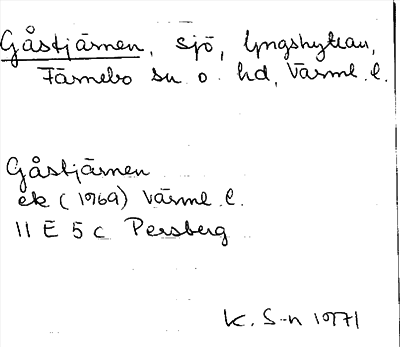 Gåstjärnen, sjö, Lyngshyttan,
Färnebo sn o. hd, Värml. l.
Gåstjärnen
ek (1969) Värml. l.
11 E 5 c Persberg
K. S-n 1971